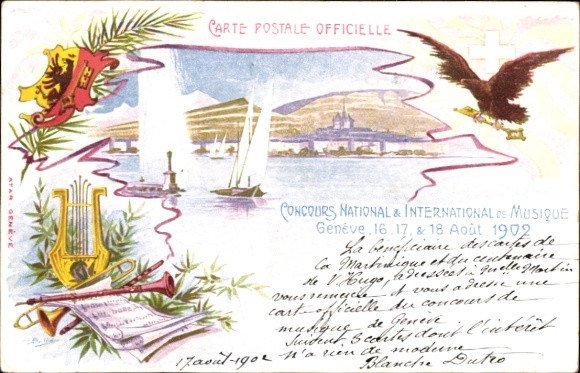 CARTE POSTALE OFFICIELLE
CONCOURS NATIONAL & INTERNATIONAL DE MUSIQUE
Genève, 16, 17, & 18 Août 1902
La bénéficiaire des cartes de
la Martinique et du centenaire
de V. Hugo, adressées à Martin
vous remercie et vous adresse une
carte officielle du concours de
musique de Genève
Suivent 3 cartes dont l'intérêt
n'a rien de moderne
17 août - 1902
Blanche Dutro
ATAR GENÈVE